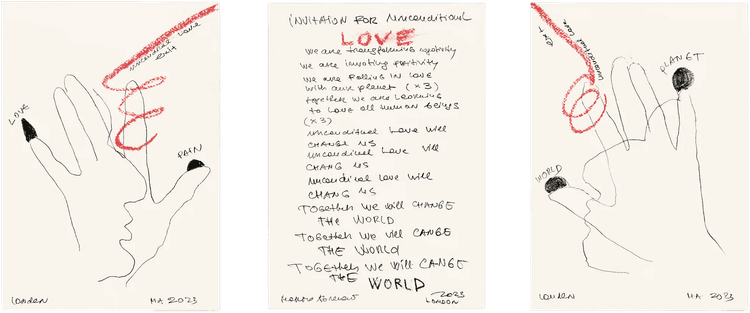 LOVE
unconditional Love
PAIN
London
MA 2023
INVITAION FOR Unconditional
LOVE
we are transforming negativity
we are inviting positivity
we are falling in love
with our planet (x3)
together we are learning
to love all human beings
(x3)
unconditional Love will
CHANGE US
unconditional Love will
CHANG US
unconditional love will
CHANG US
TOGETHER WE will CHANGE
THE WORLD
TOGETHER WE will CANGE
THE WORLD
TOGETHER WE will CANGE
THE WORLD
2023
LONDON
unconditional Love
PLANET
WORLD
London
MA 2023